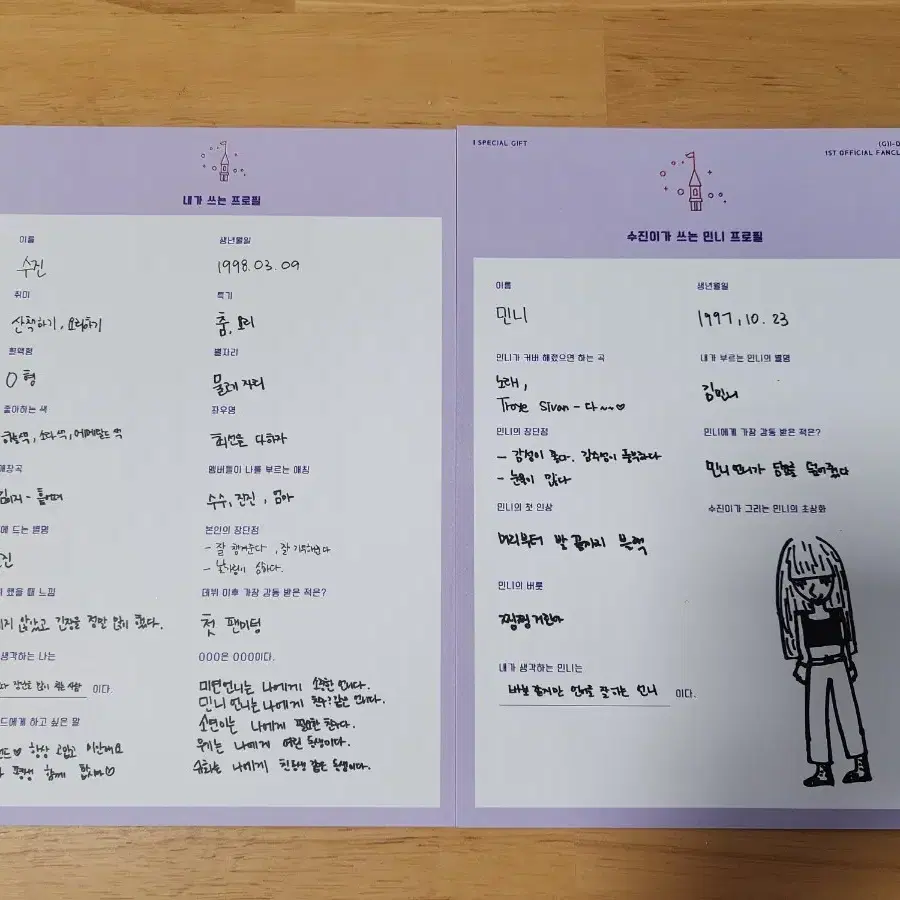 내가 쓰는 프로필
이름
수진
생년월일
1998.03.09
취미
산책하기, 요리하기
특기
춤, 요리
혈액형
O형
별자리
물고기자리
좋아하는 색
하늘색, 소라색, 에메랄드색
좌우명
최선을 다하자
멤버들이 나를 부르는 애칭
수수, 진진, 엄마
에 드는 별명
진
본인의 장단점
- 잘 챙겨준다, 잘 기억한다
- 낯가림이 심하다.
했을 때 느낌
지 않았고 긴장을 정말 많이 했다.
데뷔 이후 가장 감동 받은 적은?
첫 팬미팅
생각하는 나는
이다.
OOO은 OOO이다.
미연언니는 나에게 소중한 언니다.
민니언니는 나에게 친구같은 언니다.
소연이는 나에게 필요한 친구다.
우기는 나에게 어린 동생이다.
슈화는 나에게 친동생 같은 동생이다.
드에게 하고 싶은 말
랜드♡ 항상 고맙고 미안해요
평생 함께 합시다♡
I SPECIAL GIFT
(G)I-D
1ST OFFICIAL FANCL
수진이가 쓰는 민니 프로필
이름
민니
생년월일
1997.10.23
민니가 커버 해줬으면 하는 곡
노래,
Troye Sivan - 다~~♡
내가 부르는 민니의 별명
김민니
민니의 장단점
- 감성이 좋다. 감수성이 풍부하다
- 눈물이 많다
민니에게 가장 감동 받은 적은?
민니언니가
민니의 첫 인상
머리부터 발 끝까지 블랙
수진이가 그리는 민니의 초상화
민니의 버릇
찡찡거린다
내가 생각하는 민니는
언니
이다.